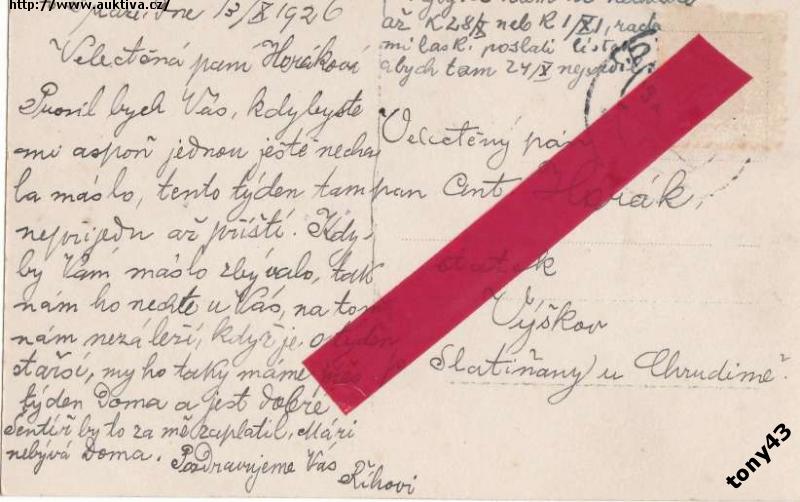 https://www.auktiva.cz/
dne 13/X 1926
Velectěná paní Horáková
Prosil bych Vás, kdybyste
mi aspoň jednou ještě necha
la máslo, tento týden tam
nepřijedu až příští. Kdy-
by Vám máslo zbývalo, tak
nám ho nechte u Vás, na tom
nám nezáleží, když je o týden
starší, my ho taky máme
týden doma a jest dobré
by to za mě zaplatil. Mári
nebývá doma. Pozdravujeme Vás
Říhovi
až K 28/X neb k 1/XI, ráda
mi lask. poslati lístek
abych tam 24/X nejezdil
Velectěný pán
pan Ant. Horák,
statek
Výškov
Slatiňany u Chrudimě.
tony43